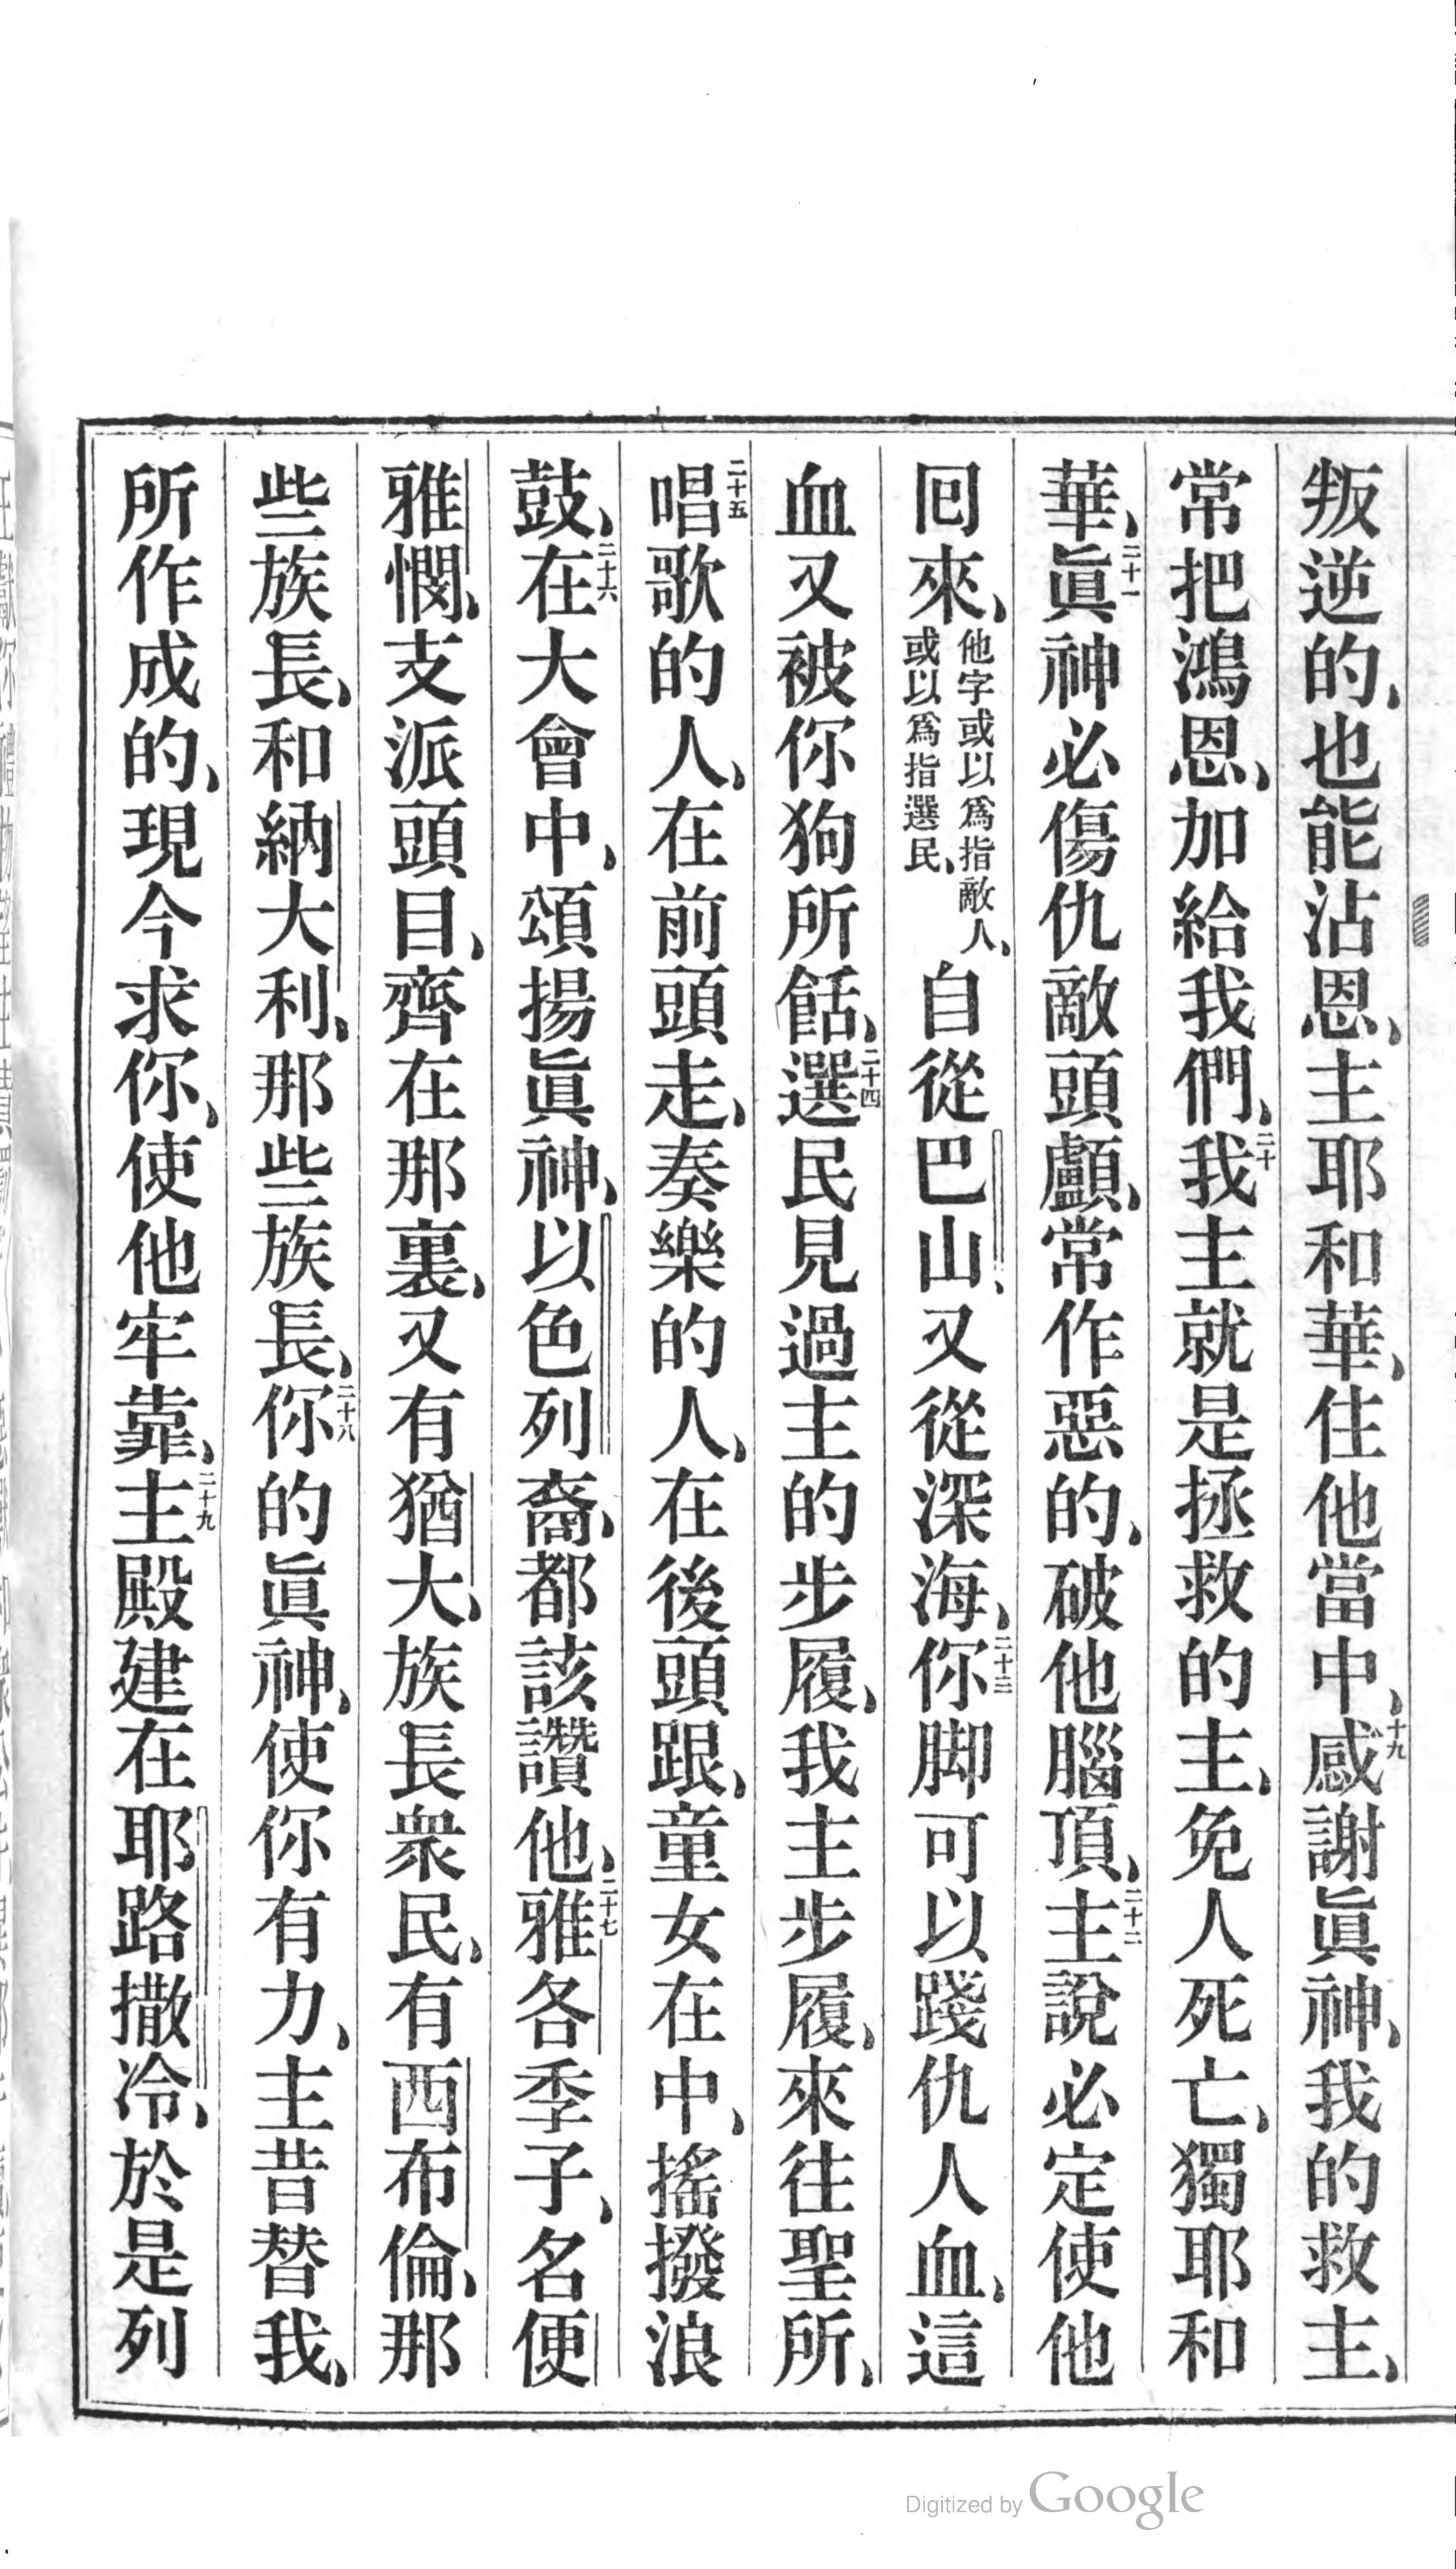 叛逆的、也能沾恩、主耶和華、住他當中、十九感謝眞神、我的救主、
常把鴻恩、加給我們、二十我主就是拯救的主、免人死亡、獨耶和
華、二十一眞神必傷仇敵頭顱、常作惡的、破他腦頂、二十二主說必定使他
囘來、他字或以爲指敵人、或以爲指選民、自從巴山、又從深海、二十三你脚可以踐仇人血、這
血又被你狗所餂、二十四選民見過主的步履、我主步履、來往聖所、
二十五唱歌的人、在前頭走、奏樂的人、在後頭跟、童女在中、搖撥浪
鼓、二十六在大會中、頌揚眞神、以色列裔、都該讚他、二十七雅各季子、名便
雅憫、支派頭目、齊在那裏、又有猶大、族長衆民、有西布倫、那
些族長、和納大利、那些族長、二十八你的眞神、使你有力、主昔替我、
所作成的、現今求你、使他牢靠、二十九主殿建在耶路撒冷、於是列
Digitized by Google